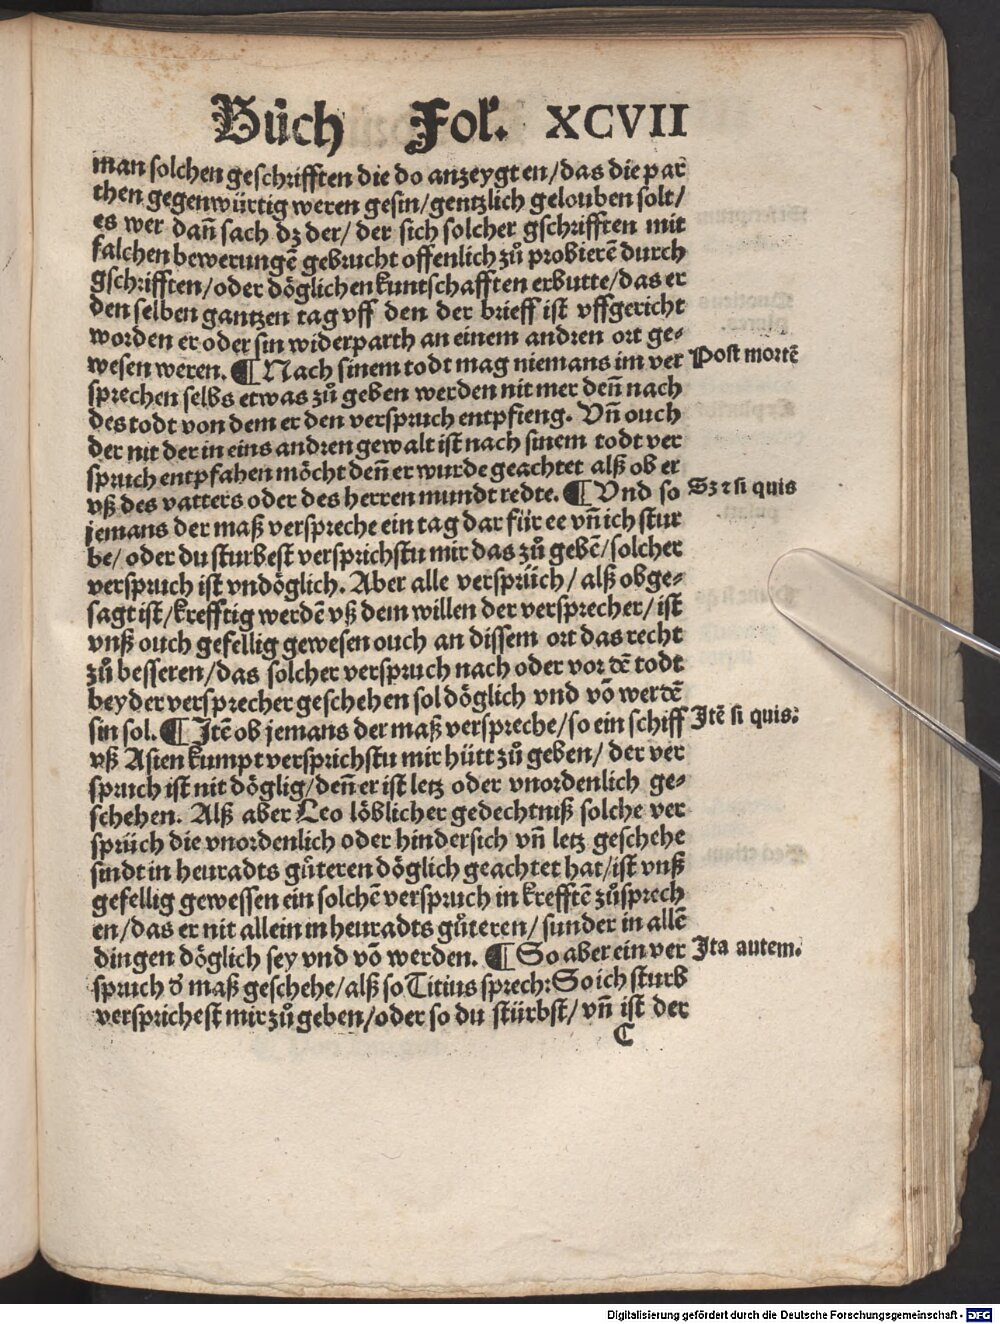 Bůch Fol. XCVII
man solchen geschrifften die do anzeygten/das die par
then gegenwürtig weren gesin/gentzlich gelouben solt/
es wer dañ sach dz der/ der sich solcher gschrifften mit
falchen bewerungē gebrucht offenlich zů probierē durch
gschrifften/oder döglichen kuntschafften erbutte/das er
den selben gantzen tag vff den der brieff ist vffgericht
worden er oder sin widerparth an einem andren ort ge⸗
wesen weren. ¶ Nach sinem todt mag niemans im ver
Post mortē
sprechen selbs etwas zů geben werden nit mer deñ nach
des todt von dem er den verspruch entpfieng. Vñ ouch
der nit der in eins andren gewalt ist nach sinem todt ver
spruch entpfahen möcht deñ er wurde geachtet alß ob er
vß des vatters oder des herren mundt redte. ¶ Vnd so
Sz ⁊ si quis
jemans der maß verspreche ein tag dar für ee vñ ich stur
be/ oder du sturbest versprichstu mir das zů gebē/solcher
verspruch ist vndöglich. Aber alle versprüch/ alß obge⸗
sagt ist/krefftig werdē vß dem willen der versprecher/ist
vnß ouch gefellig gewesen ouch an dissem ort das recht
zů besseren/das solcher verspruch nach oder vor dē todt
beyder versprecher geschehen sol döglich vnd vō werdē
sin sol. ¶ Itē ob jemans der maß verspreche/so ein schiff
Itē si quis:
vß Asien kumpt versprichstu mir hütt zů geben/ der ver
spruch ist nit döglig/deñ er ist letz oder vnordenlich ge⸗
schehen. Alß aber Leo löblicher gedechtniß solche ver
sprüch die vnordenlich oder hindersich vñ letz geschehe
sindt in heuradts gůteren döglich geachtet hat/ist vnß
gefellig gewessen ein solchē verspruch in krefftē zůsprech
en/das er nit allein in heuradts gůteren/ sunder in allē
dingen döglich sey vnd vō werden. ¶ So aber ein ver
Ita autem.
spruch ď maß geschehe/alß so Titius sprech: So ich sturb
versprichest mir zů geben/oder so du stürbst/ vñ ist der
C
Digitalisierung gefördert durch die Deutsche Forschungsgemeinschaft - DFG